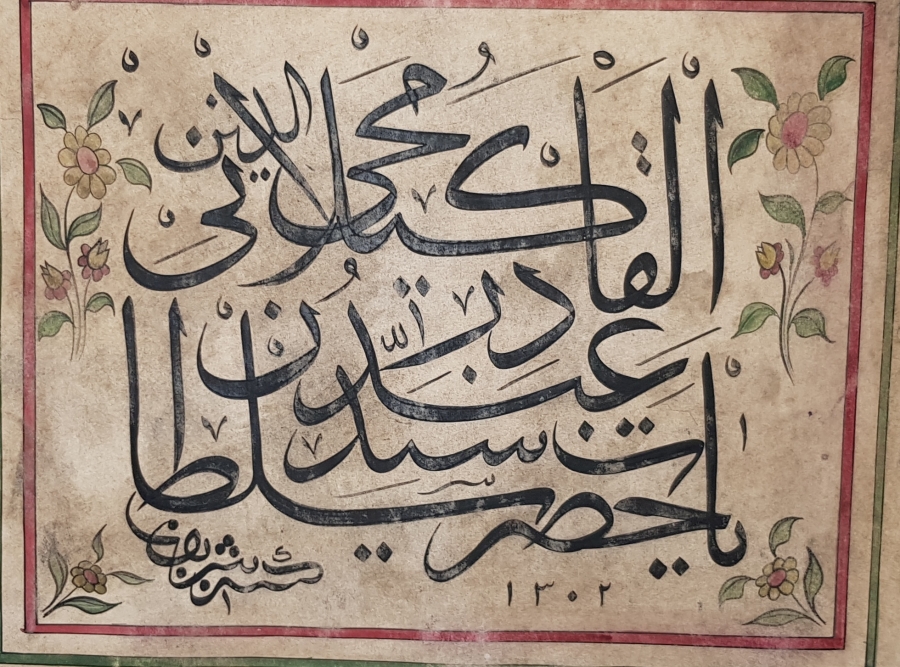 يا حضرت سلطان
سيد عبد القادر
كيلاني محي الدين
١٣٠٢